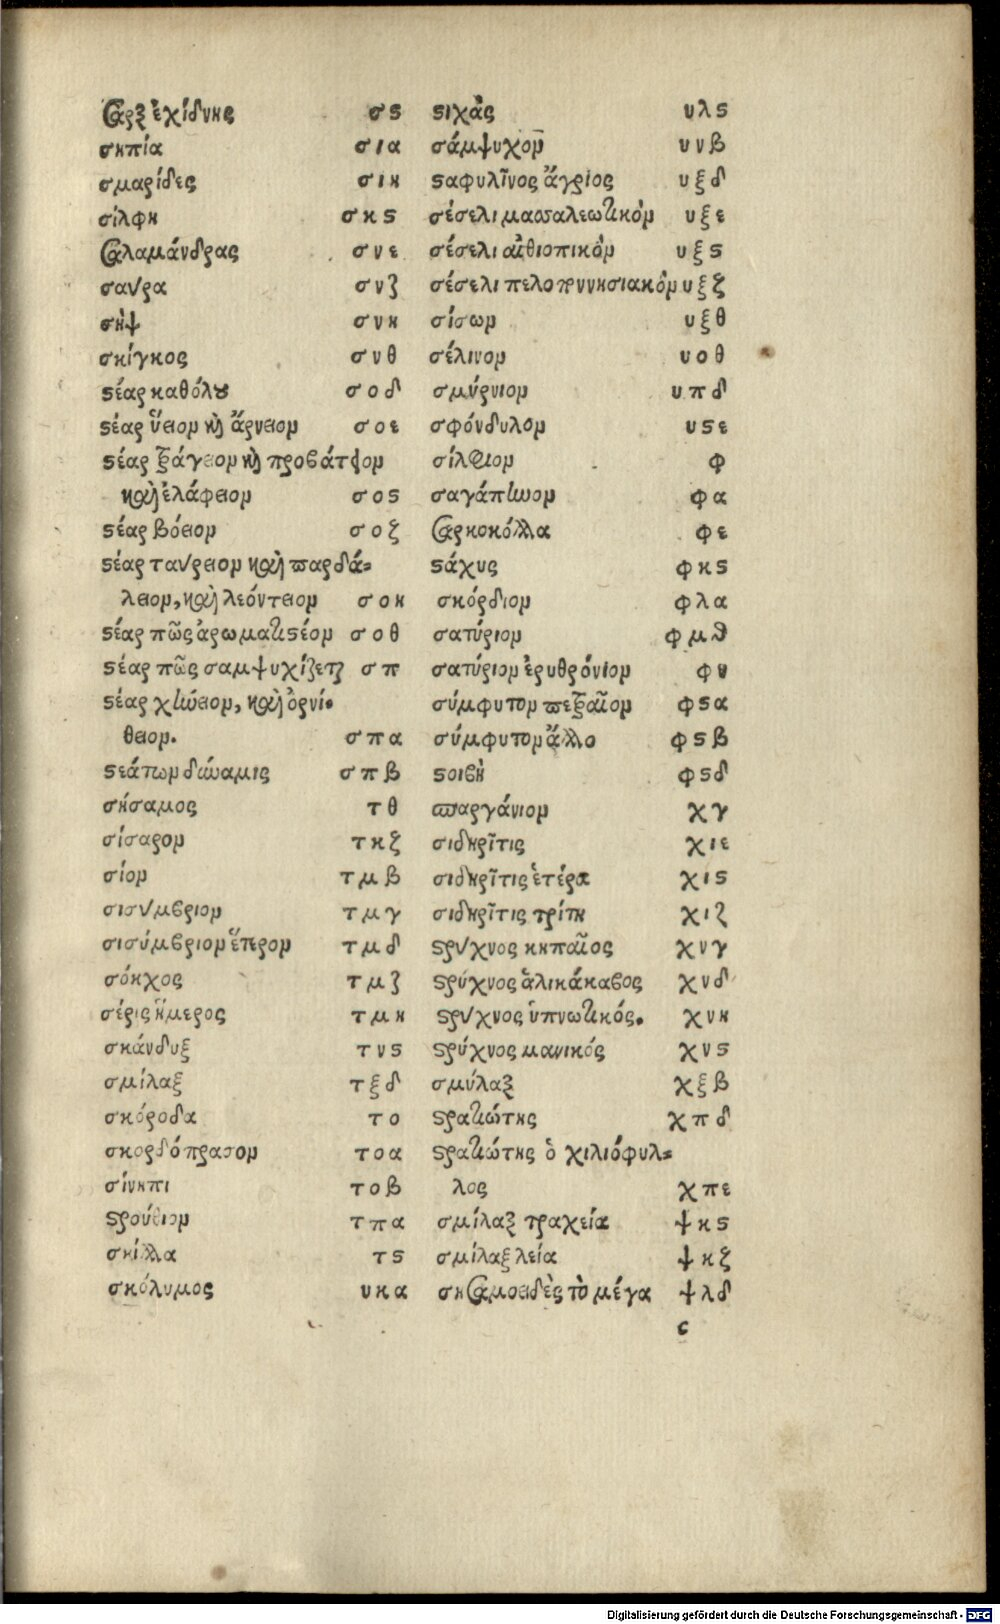 σαρξ ἐχίδνης σϛ
σηπία σια
σμαρίδες σιη
σίλφη σκϛ
σαλαμάνδρας σνε
σαύρα σνζ
σὴψ σνη
σκίγκος σνθ
στέαρ καθόλου σοδ
στέαρ ὕειον καὶ ἄρνειον σοε
στέαρ τράγειον καὶ προβάτειον
καὶ ἐλάφειον σοϛ
στέαρ βόειον σοζ
στέαρ ταύρειον καὶ παρδά-
λειον, καὶ λεόντειον σοη
στέαρ πῶς ἀρωματιστέον σοθ
στέαρ πῶς σαμψυχίζεται σπ
στέαρ χήνειον, καὶ ὀρνί-
θειον. σπα
στεάτων δύναμις σπβ
σήσαμος τθ
σίσαρον τκζ
σίον τμβ
σισύμβριον τμγ
σισύμβριον ἕτερον τμδ
σόγχος τμζ
σέρις ἥμερος τμη
σκάνδυξ τνϛ
σμίλαξ τξδ
σκόροδα το
σκορδόπρασον τοα
σίνηπι τοβ
στρούθιον τπα
σκίλλα τϛ
σκόλυμος υκα
στιχὰς υλϛ
σάμψυχον υνβ
σταφυλῖνος ἄγριος υξδ
σέσελι μασσαλεωτικὸν υξε
σέσελι αἰθιοπικὸν υξϛ
σέσελι πελοποννησιακὸν υξζ
σίσων υξθ
σέλινον υοθ
σμύρνιον υπδ
σφόνδυλον υϛε
σίλφιον φ
σαγάπηνον φα
σαρκοκόλλα φε
στάχυς φκϛ
σκόρδιον φλα
σατύριον φμθ
σατύριον ἐρυθρόνιον φν
σύμφυτον πετραῖον φϛα
σύμφυτον ἄλλο φϛβ
στοιβὴ φϛδ
σπαργάνιον χγ
σιδηρῖτις χιε
σιδηρῖτις ἑτέρα χιϛ
σιδηρῖτις τρίτη χιζ
στρύχνος κηπαῖος χνγ
στρύχνος ἁλικάκαβος χνδ
στρύχνος ὑπνωτικός. χνη
στρύχνος μανικός χνϛ
σμύλαξ χξβ
στρατιώτης χπδ
στρατιώτης ὁ χιλιόφυλ-
λος χπε
σμίλαξ τραχεία ψκϛ
σμίλαξ λεία ψκζ
σησαμοειδὲς τὸ μέγα ψλδ
c
Digitalisierung gefördert durch die Deutsche Forschungsgemeinschaft - DFG